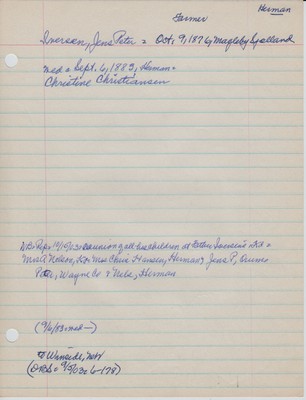 Herman
Farmer
Iversen, Jens Peter = Oct. 9, 1876, Magleby Sjelland
med = Sept. 6, 1883, Herman =
Christine Christiansen
D.B. Rep. 10/10/03: reunion of all his children at Father Iversen's =
Mrs. A Nelson, Mrs Chris Hansen, Herman; Jens P,
Peter, Wayne Co Nebr, Herman
(9/6/83 = med -)
To Winside, Nebr
(DBb = 9/5/03: 6-178)